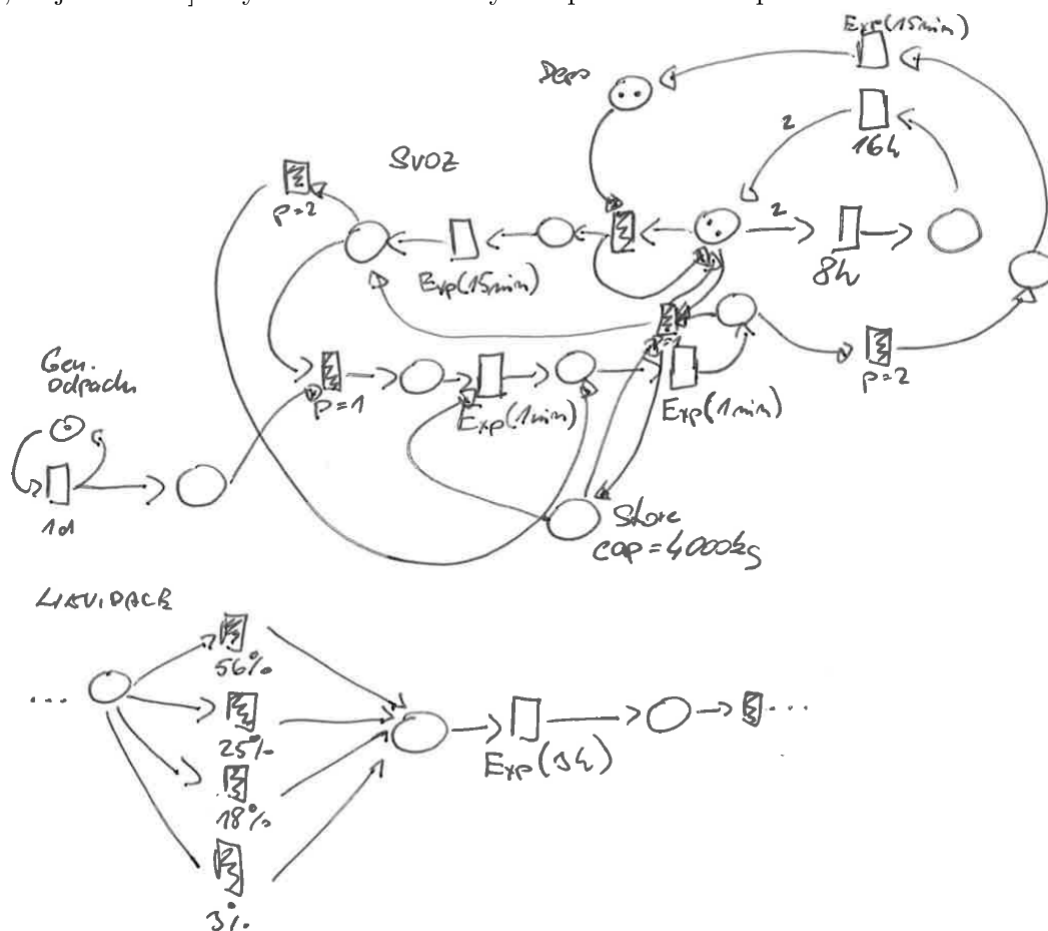 Exp(15min)
Depo
2
16h
SVOZ
p=2
2
8h
Exp(15min)
Gen.
odpadu
p=1
Exp(1min)
Exp(1min)
p=2
1d
Store
cap=4000kg
LIKVIDACE
56%
...
25%
...
Exp(3h)
18%
3%